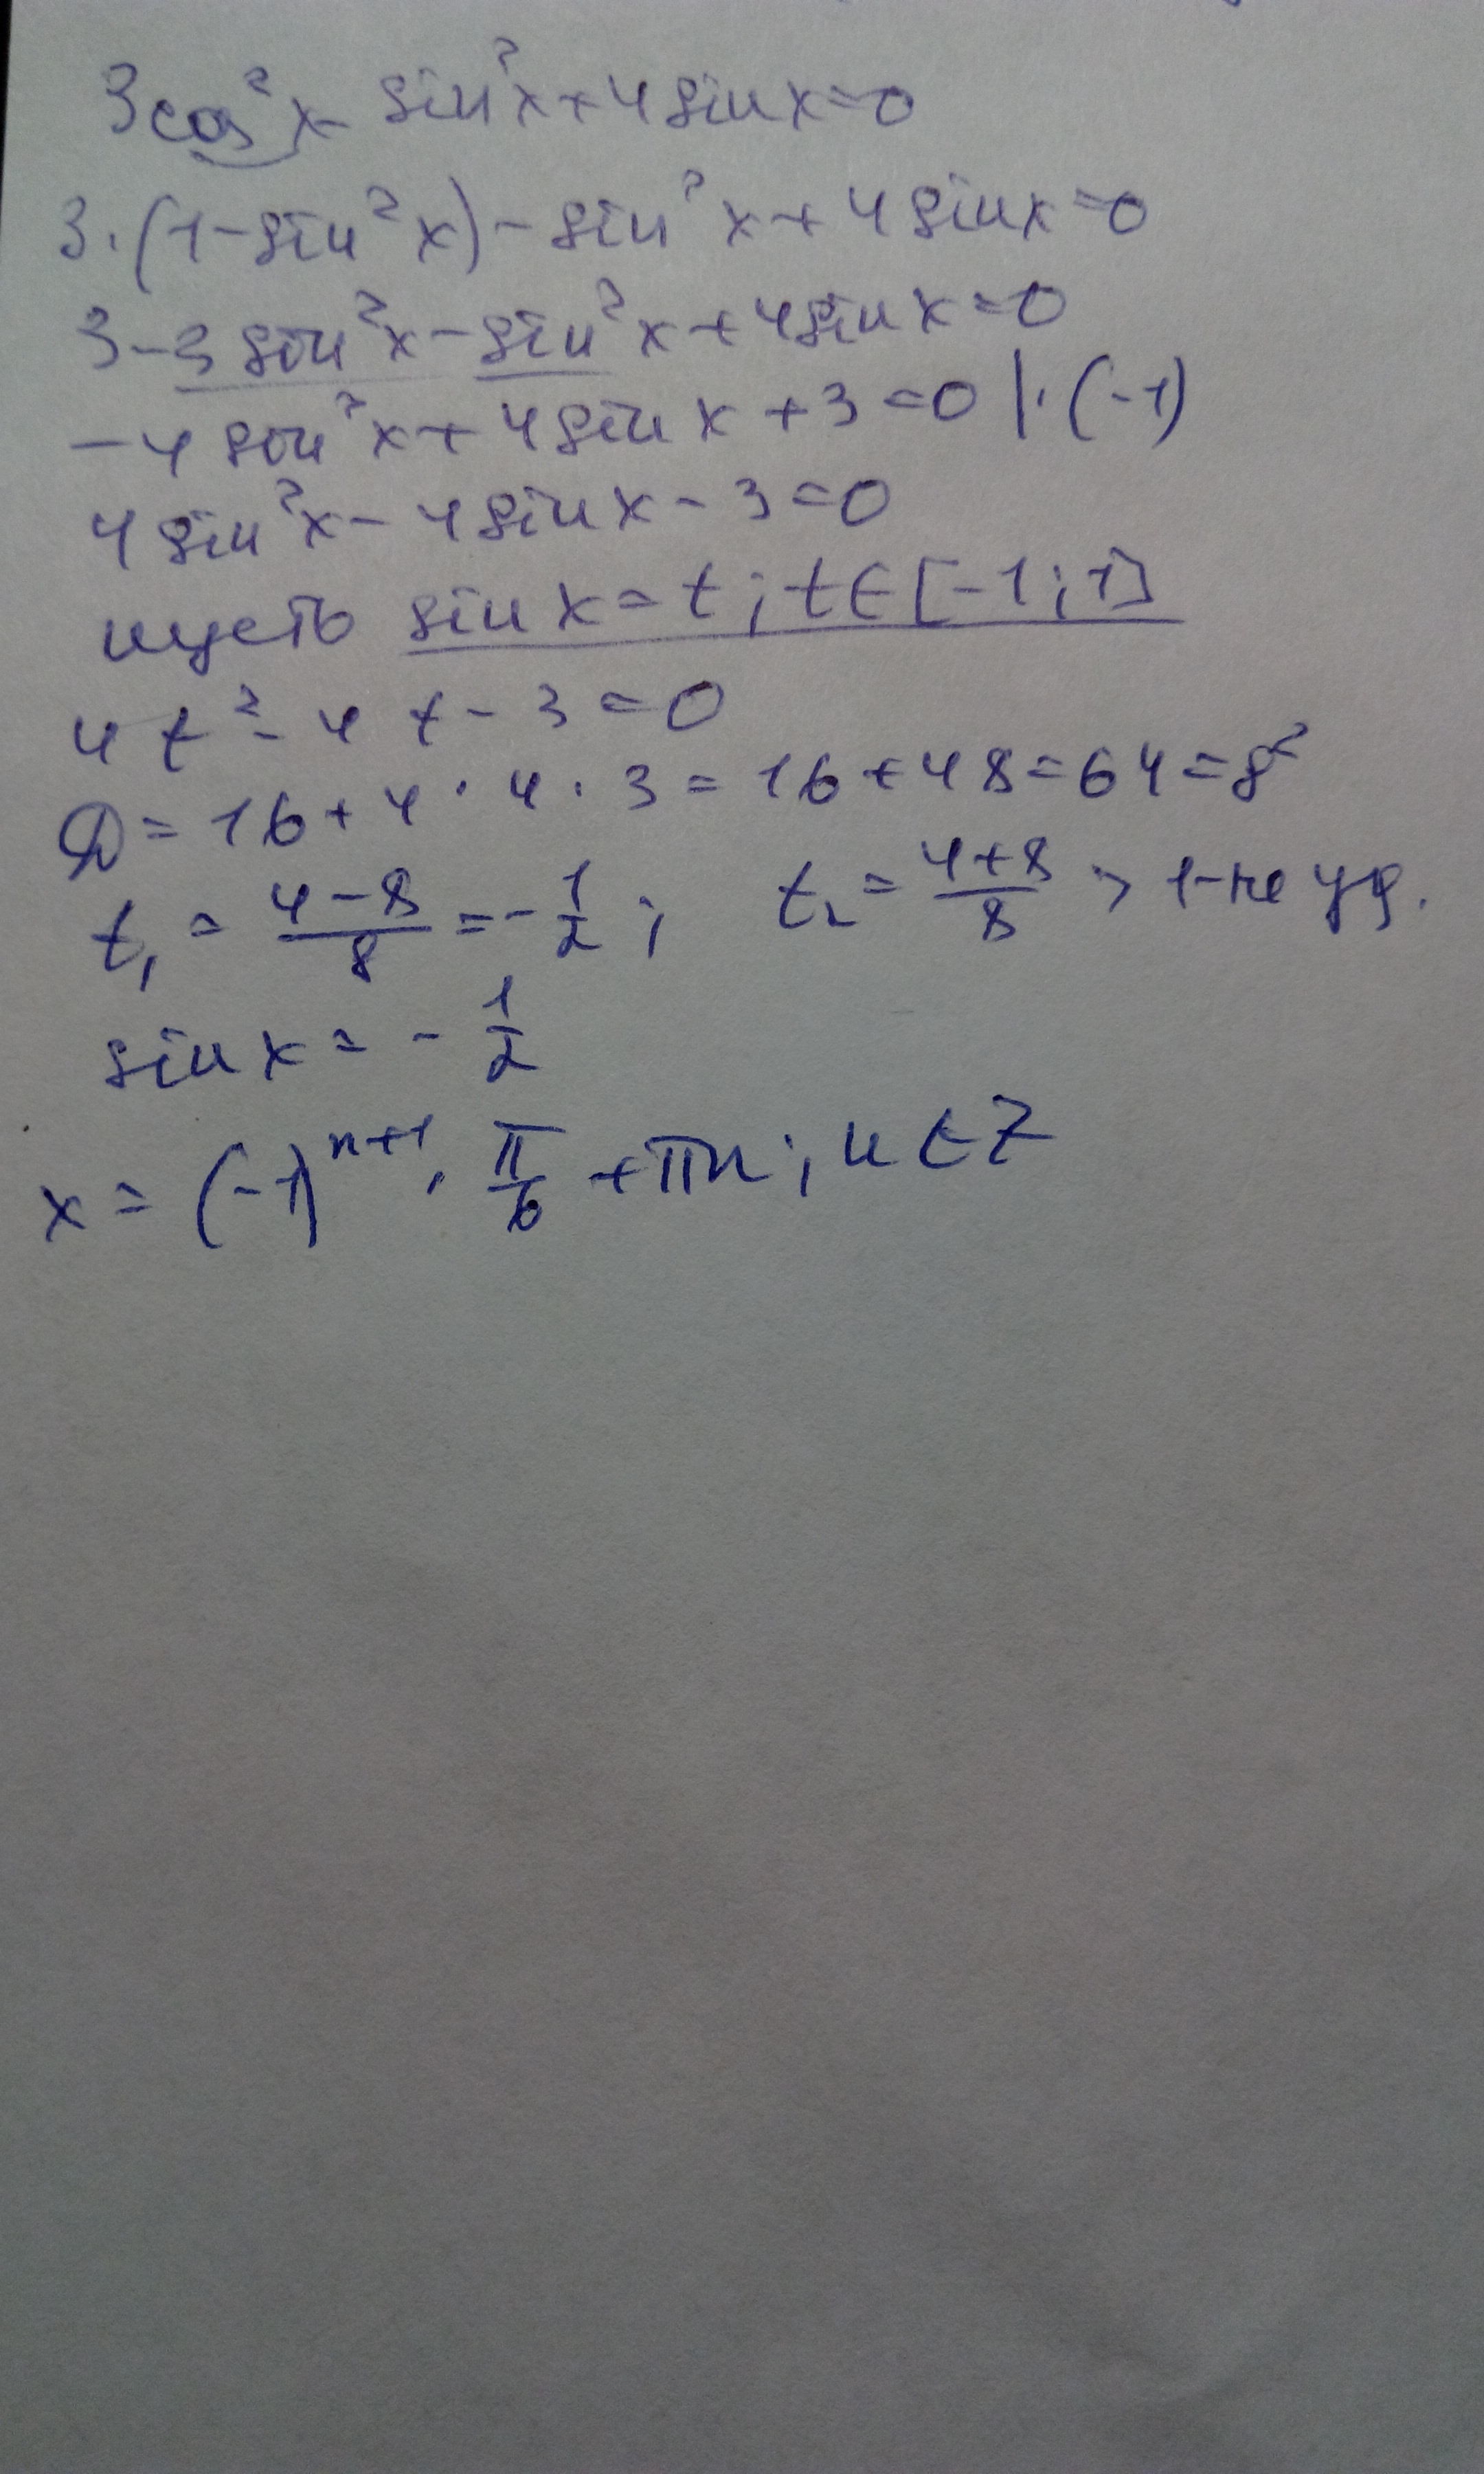 3cos²x - sin²x + 4sinx = 0
3·(1 - sin²x) - sin²x + 4sinx = 0
3 - 3sin²x - sin²x + 4sinx = 0
-4sin²x + 4sinx + 3 = 0 |·(-1)
4sin²x - 4sinx - 3 = 0
пусть sinx = t; t∈[-1;1]
4t² - 4t - 3 = 0
D = 16 + 4·4·3 = 16 + 48 = 64 = 8²
t₁ = (4-8)/8 = -1/2; t₂ = (4+8)/8 > 1 - не уд.
sinx = -1/2
x = (-1)ⁿ⁺¹·π/6 + πn; n∈Z